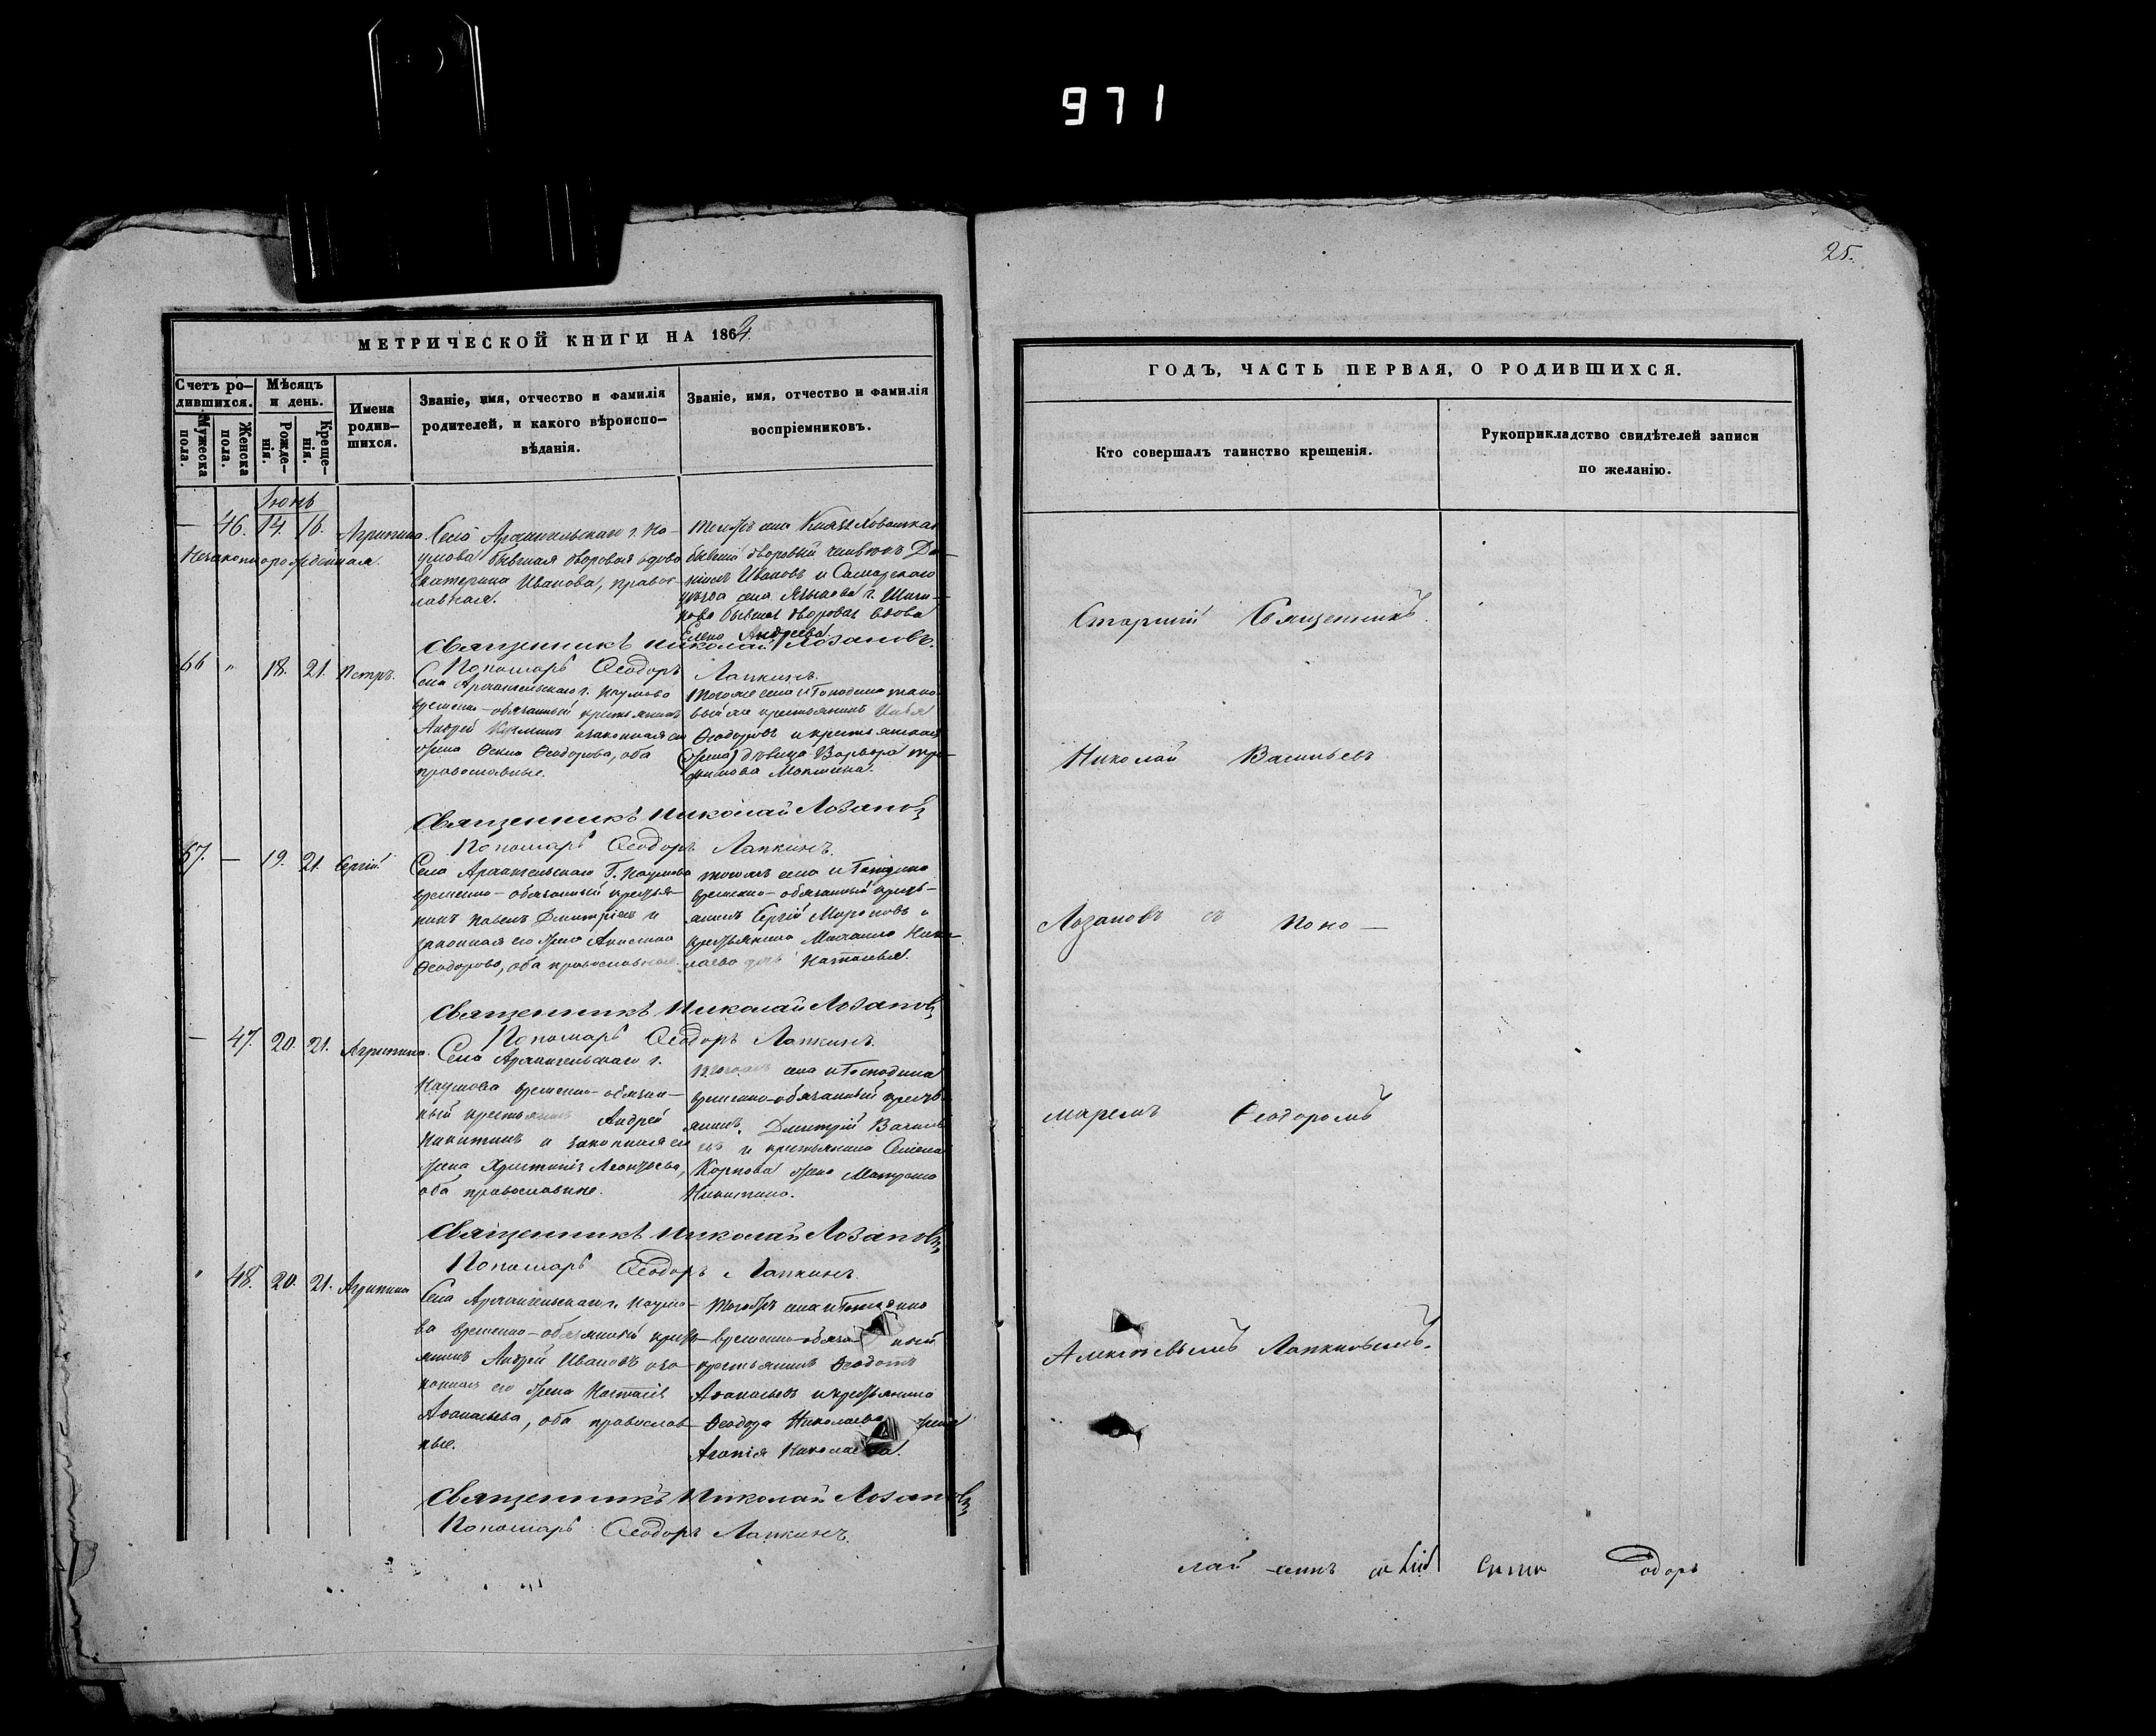 971
25.
МЕТРИЧЕСКОЙ КНИГИ НА 1864.
Счетъ ро-
дившихся.
Мужеска
пола.
Женска
пола.
Мѣсяцъ
и день.
Рожде-
нія.
Креще-
нія.
Имена
родив-
шихся.
Званіе, имя, отчество и фамилія
родителей, и какого вѣроиспо-
вѣданія.
Званіе, имя, отчество и фамилія
воспріемниковъ.
Іюнь
— 46. 14. 16. Агрипина.
Незаконнорожденная.
Села Архангельскаго г. На-
умова бывшая дворовая вдова
Екатерина Иванова, правос-
лавная.
Тогожъ села Князя Хованскаго
бывшій дворовый человѣкъ Да-
нилъ Ивановъ и Самарскаго
уѣзда села Языкова г.
бывшая дворовая вдова
Елена Андреева.
Священникъ Николай Лозановъ.
Пономарь Ѳеодоръ Лапкинъ.
66 " 18. 21. Петръ.
Села Архангельскаго г. Наумова
временно-обязанный крестьянинъ
Андрей Кузминъ и законная его
жена Ѳекла Ѳеодорова, оба
православные.
Тогоже села и Господина тако-
вый же крестьянинъ Илья
Ѳеодоровъ и крестьянская
(жена) дѣвица Варвара Тро-
фимова
Священникъ Николай Лозановъ
Пономарь Ѳеодоръ Лапкинъ.
67. — 19. 21. Сергій
Села Архангельскаго Г. Наумова
временно-обязанный крестья-
нинъ Павелъ Димитріевъ и
законная его жена
Ѳеодорова, оба православная.
тогожъ села и Господина
временно-обязанный кресть-
янинъ Сергій Мироновъ и
крестьянина Михаила Нико-
лаева дочь Наталья.
Священникъ Николай Лозановъ
Пономарь Ѳеодоръ Лапкинъ.
— 47. 20. 21. Агрипина.
Села Архангельскаго г.
Наумова временно-обязан-
ный крестьянинъ Андрей
Никитинъ и законная его
жена Христинія Леонтьева,
оба православные.
Тогожъ села и Господина
временно-обязанный кресть-
янинъ Дмитрій Василь-
евъ и крестьянина Семена
Карпова жена Матрона
Никитина.
Священникъ Николай Лозановъ
Пономарь Ѳеодоръ Лапкинъ.
" 48. 20. 21. Агрипина
Села Архангельскаго г. Наумо-
ва временно-обязанный кресть-
янинъ Андрей Ивановъ и за-
конная его жена Наталія
Аѳанасьева, оба православ-
ные.
Тогожъ села и Господина
временно-обязанный
крестьянинъ Ѳеодотъ
Аѳанасьевъ и крестьянина
Ѳеодора Николаева жена
Агапія Николаева.
Священникъ Николай Лозановъ
Пономарь Ѳеодоръ Лапкинъ.
ГОДЪ, ЧАСТЬ ПЕРВАЯ, О РОДИВШИХСЯ.
Кто совершалъ таинство крещенія.
Рукоприкладство свидѣтелей записи
по желанію.
Старшій Священникъ
Николай Васильевъ
Лозановъ съ Поно-
маремъ Ѳеодоромъ
Алексѣевымъ Лапкинымъ.
лай
одоръ